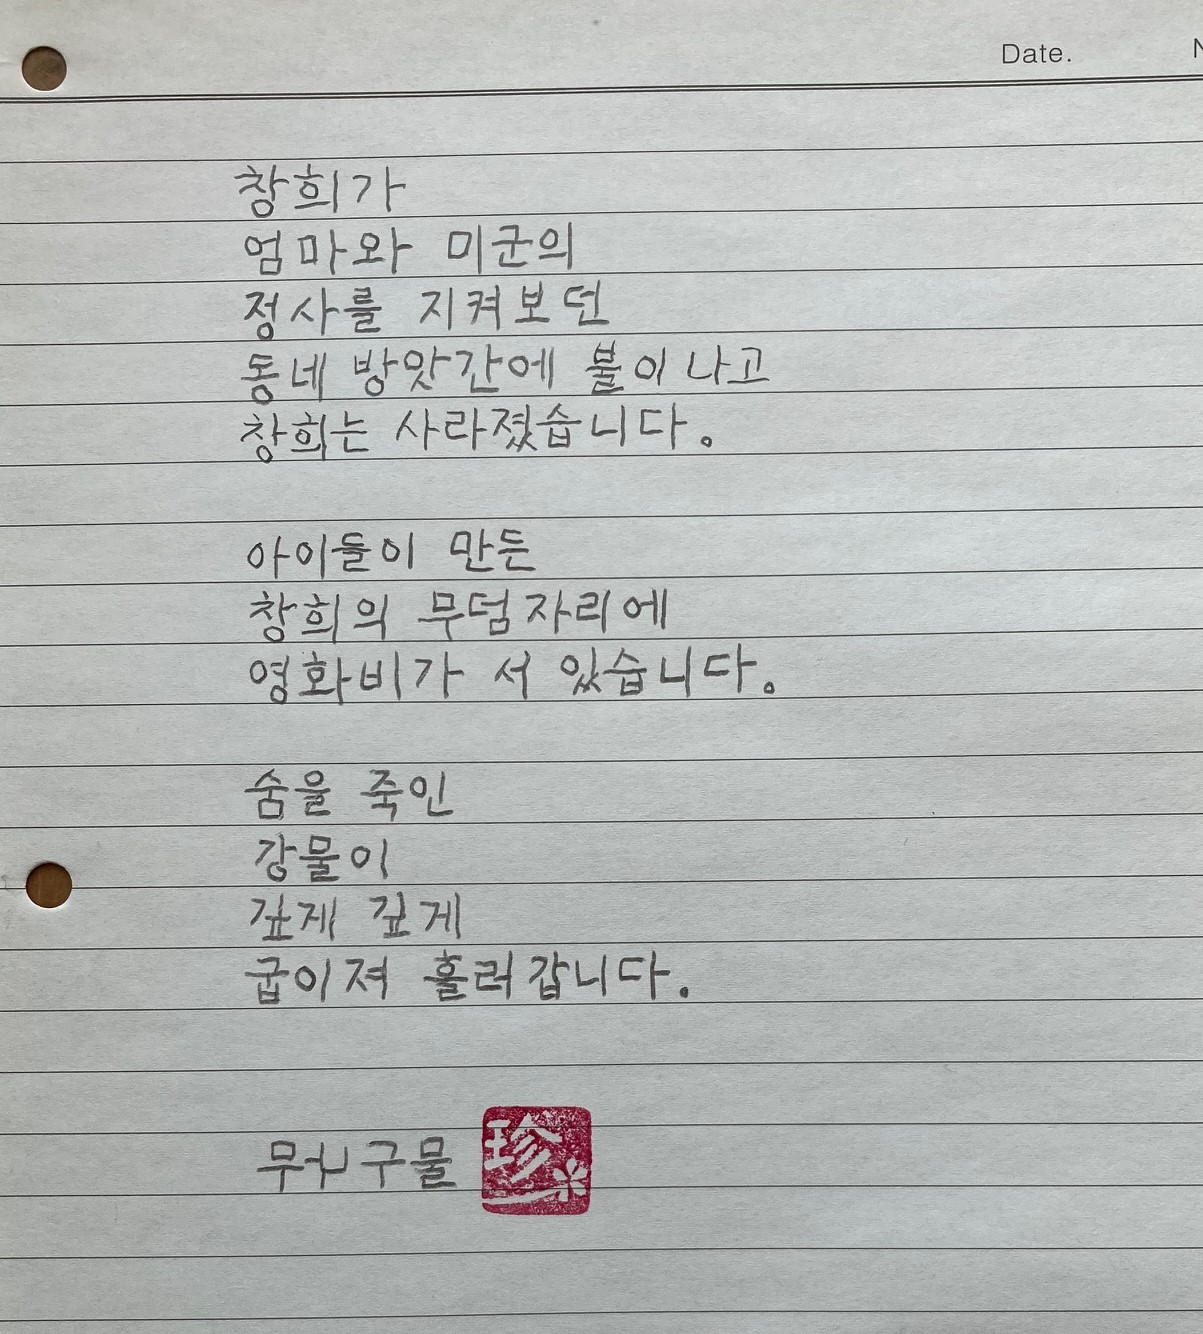 Date.
창희가
엄마와 미군의
정사를 지켜보던
동네 방앗간에 불이 나고
창희는 사라졌습니다.
아이들이 만든
창희의 무덤자리에
영화비가 서 있습니다.
숨을 죽인
강물이
깊게 깊게
굽이져 흘러갑니다.
구물
珍